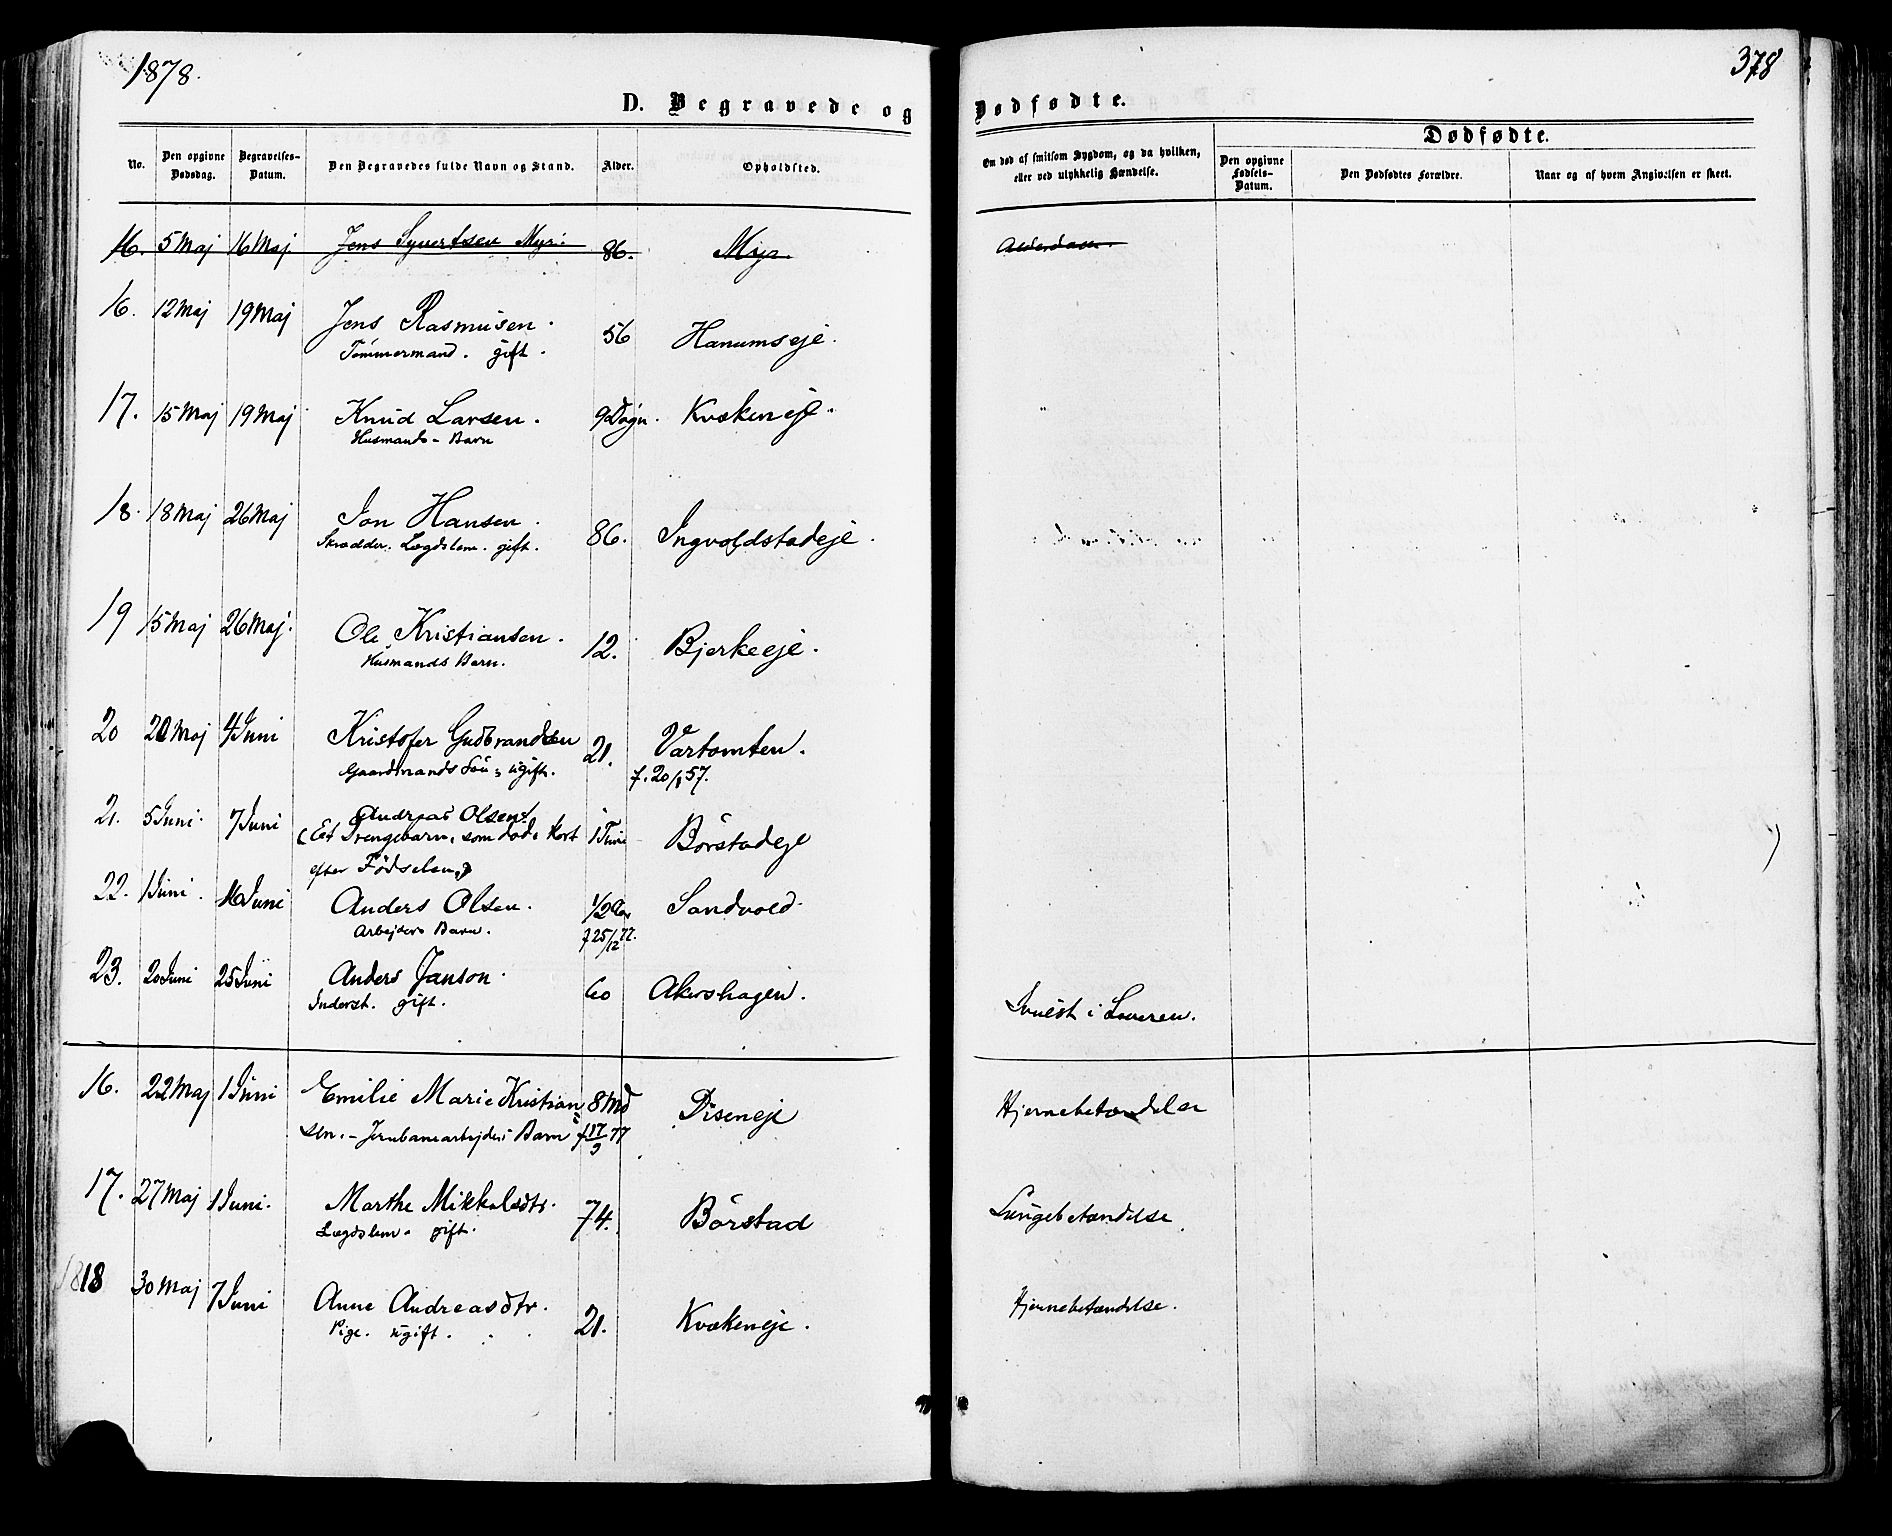 1878.
378
D. Begravede og Dødfødte.
No.
Den opgivne Dødsdag.
Begravelses-Datum.
Den Begravedes fulde Navn og Stand.
Alder.
Opholdsted.
Om død af smitsom Sygdom, og da hvilken, eller ved ulykkelig Hændelse.
Dødfødte.
Den opgivne Fødsels-Datum.
Den Dødfødtes Forældre.
Naar og af hvem Angivelsen er skeet.
16. 5 Maj 16 Maj Jens Syvertsen Myr. 86. Myr.
16. 12 Maj 19 Maj Jens Rasmusen. 56 Hanumseje.
Tømmermand. gift.
17. 15 Maj 19 Maj Knud Larsen. 9 Døgn. Kvækeneje.
Husmands-Barn
18. 18 Maj 26 Maj Jon Hansen. 86. Ingvoldstadeje.
Skrædder. Lægdslem. gift.
19 15 Maj 26 Maj. Ole Kristiansen. 12. Bjerkeeje.
Husmands Barn.
20 20 Maj 4 Juni Kristofer Gudbrandsen 21. Vartomten.
Gaardmands Søn, ugift. f. 20/8 57.
21. 5 Juni. 7 Juni Andreas Olsen.
(Et Drengebarn, som døde kort 1 Time Børstadeje
efter Fødselen.)
22. 1 Juni. 16 Juni Anders Olsen. 1/2 Aar Sandvold.
Arbejders Barn. f 25/12 77.
23. 20 Juni 25 Juni Anders Janson. 60 Akershagen. Svulst i Leveren.
Inderst. gift.
16. 22 Maj 1 Juni Emilie Marie Kristian 8 Md Diseneje Hjernebetændelse
sen. - Jernbanearbejders Barn f 17/9 77
17. 27 Maj 1 Juni. Marthe Mikkelsdtr. 74. Børstad Lungebetændelse.
Lægdslem. gift.
18 30 Maj 7 Juni Anne Andreasdtr. 21. Kvækeneje. Hjernebetændelse.
Pige. ugift.